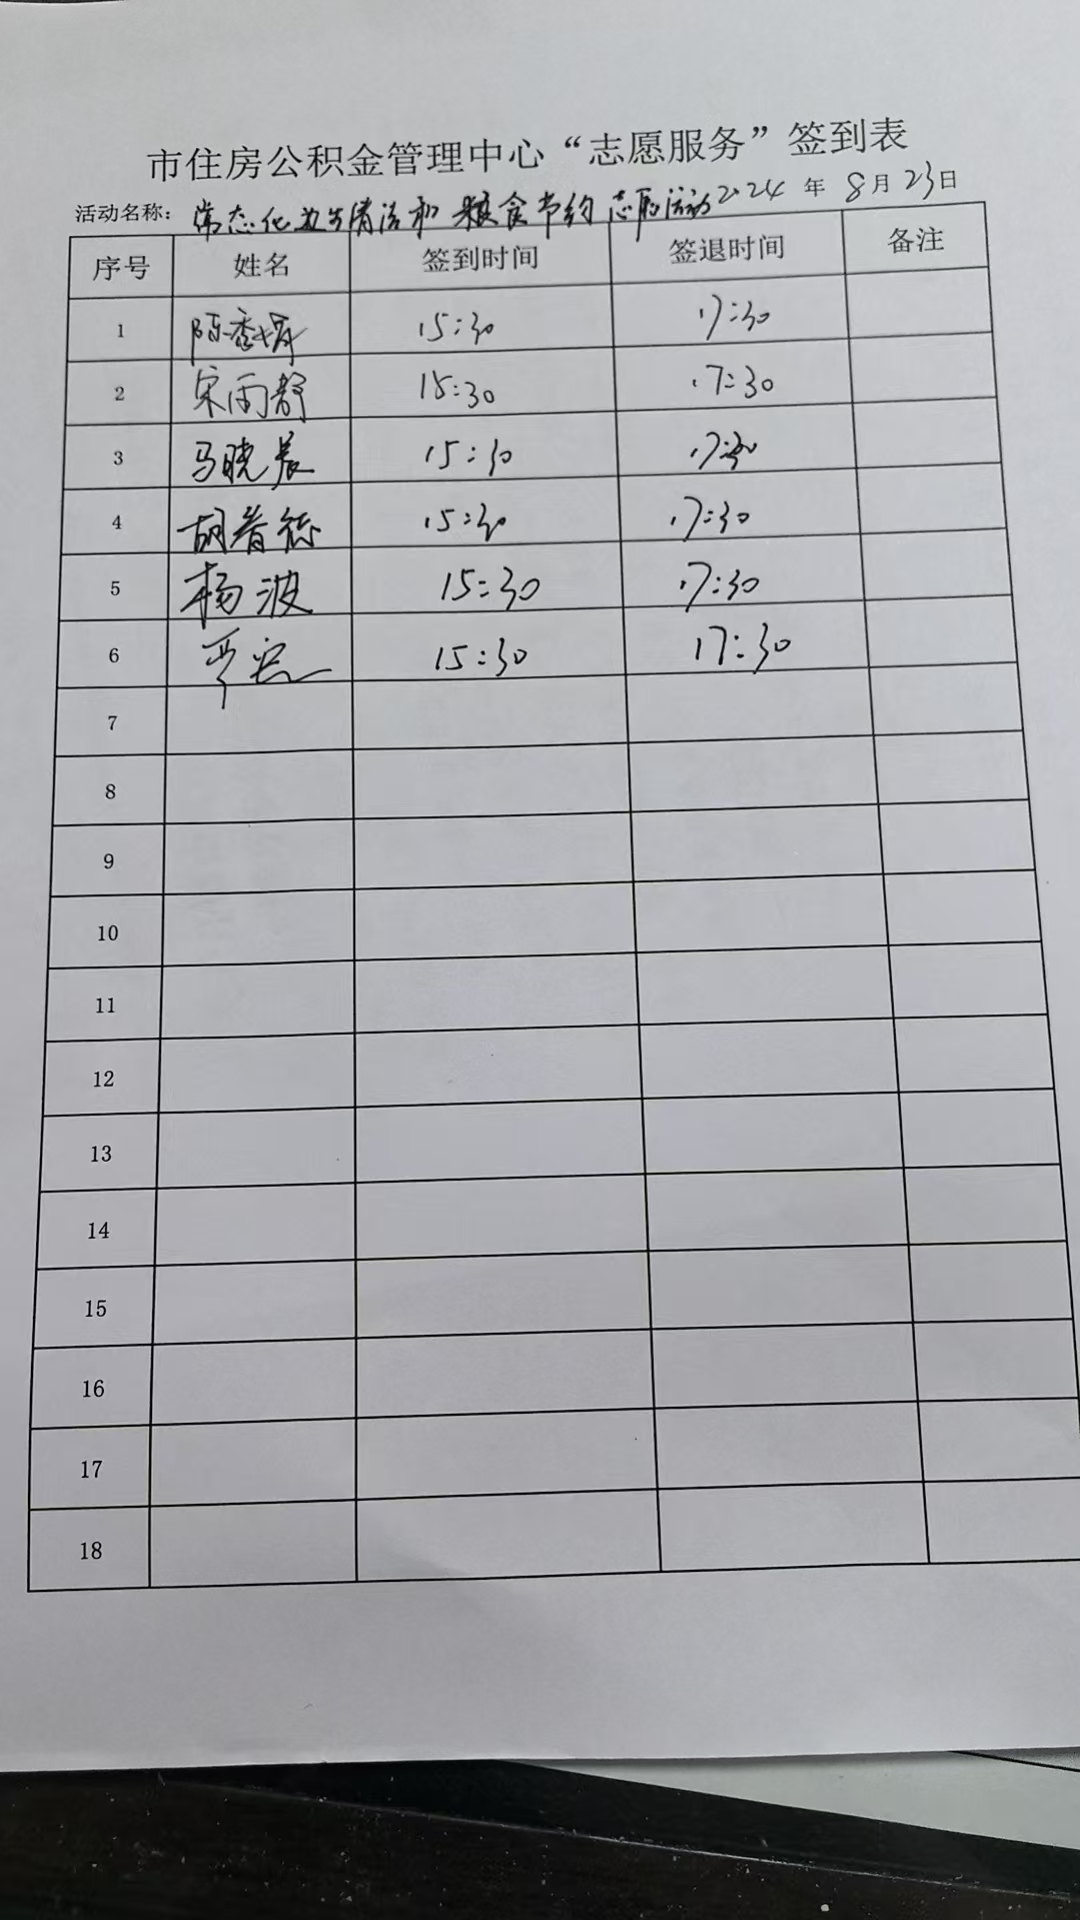 市住房公积金管理中心“志愿服务”签到表
活动名称：常态化卫生清洁和粮食节约志愿活动 2024 年 8 月 23 日
序号 姓名 签到时间 签退时间 备注
1 陈 15:30 17:30
2 宋雨舒 15:30 17:30
3 马晓晨 15:30 17:30
4 胡 15:30 17:30
5 杨波 15:30 17:30
6 15:30 17:30
7
8
9
10
11
12
13
14
15
16
17
18